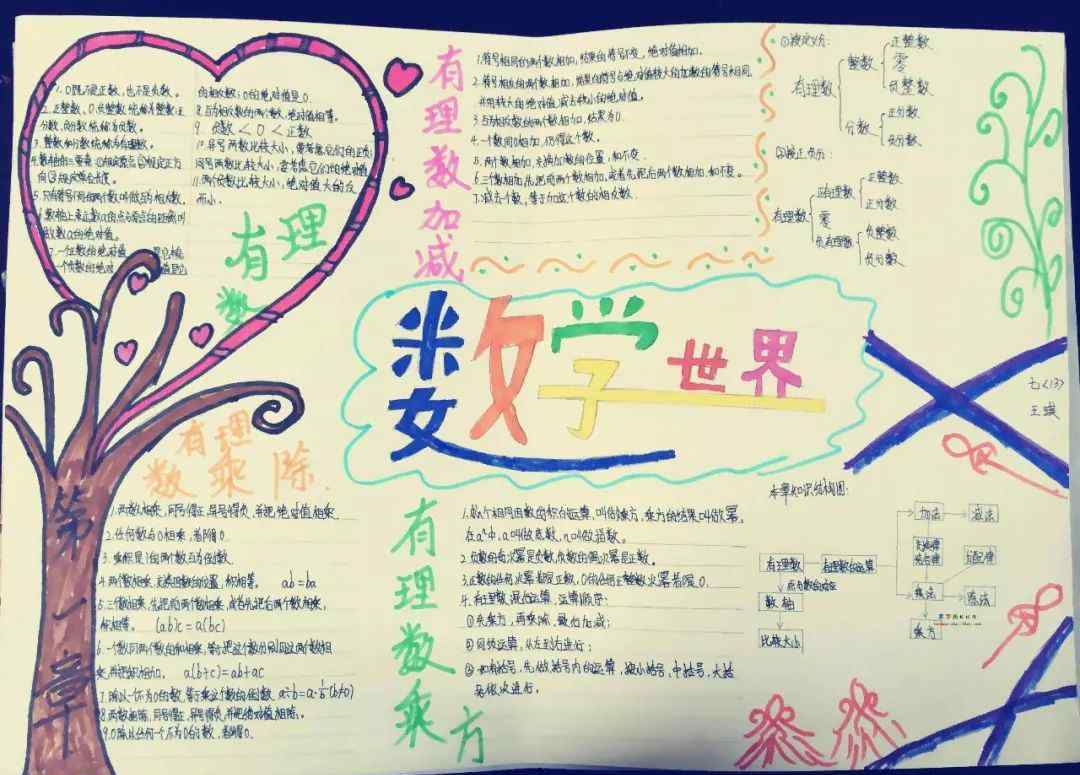 数学世界
第一章
有理数
1. 0既不是正数,也不是负数。
2. 正整数,0,负整数统称为整数;正
分数,负分数统称为负数。
3. 整数和分数统称为有理数。
向③规定单位长度。
5. 只有符号不同的两个数叫做互为相反数。
6. 数轴上表示数a的点与原点的距离叫
做数a的绝对值。
7. 一个正数的绝对值
一个负数的绝对
的相反数;0的绝对值是0.
8. 互为相反数的两个数,绝对值相等。
9. 负数<0<正数
10. 异号两数比较大小,要考虑它们的正负;
同号两数比较大小,要考虑它们的绝对值
11. 两个负数比较大小,绝对值大的反
而小.
有理数加减
1. 符号相同的两个数相加,结果的符号不变,绝对值相加.
2. 符号相反的两个数相加,结果的符号与绝对值较大的加数的符号相同,
并用较大的绝对值,减去较小的绝对值.
3. 互为相反数的两个数相加,结果为0.
4. 一个数同0相加,仍得这个数。
5. 两个数相加,交换加数的位置,和不变.
6. 三个数相加,先把前两个数相加,或者先把后两个数相加,和不变。
7. 减去一个数,等于加这个数的相反数.
①按定义分:
有理数
整数
正整数
零
负整数
分数
正分数
负分数
②按正负分:
有理数
正有理数
正整数
正分数
零
负有理数
负整数
负分数
七<13>
有理数乘除
1. 两数相乘,同号得正,异号得负,并把绝对值相乘.
2. 任何数与0相乘,都得0.
3. 乘积是1的两个数互为倒数
4. 两个数相乘,交换因数的位置,积相等。 ab=ba
5. 三个数相乘,先把前两个数相乘,或者先把后两个数相乘,
积相等。 (ab)c=a(bc)
6. 一个数同两个数的和相乘,等于把这个数分别同这两个数相
乘,再把积相加. a(b+c)=ab+ac
7. 除以一个不为0的数,等于乘这个数的倒数 a÷b=a·1/b(b≠0)
8. 两数相除,同号得正,异号得负,并把绝对值相除。
9. 0除以任何一个不为0的数,都得0.
有理数乘方
1. 求n个相同因数的积的运算,叫做乘方,乘方的结果叫做幂.
在aⁿ中,a叫做底数,n叫做指数。
2. 负数的奇次幂是负数,负数的偶次幂是正数。
3. 正数的任何次幂都是正数,0的任何正整数次幂都是0.
4. 有理数混合运算,运算顺序:
①先乘方,再乘除,最后加减;
②同级运算,从左到右进行;
③如有括号,先做括号内的运算,按小括号,中括号,大括
号依次进行.
本章知识结构图:
有理数
点与数的对应
数轴
比较大小
有理数的运算
加法
减法
交换律
结合律
分配律
乘法
除法
乘方